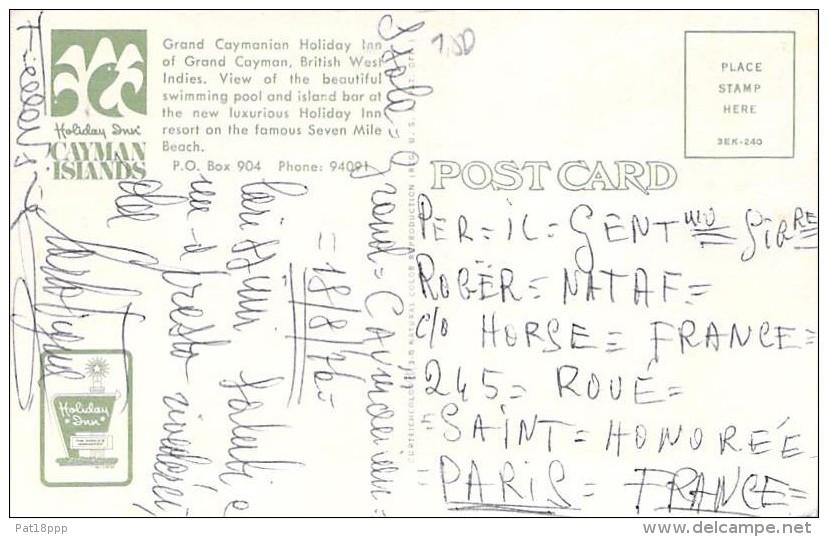 Holiday Inn
CAYMAN
ISLANDS
Grand Caymanian Holiday Inn
of Grand Cayman, British West
Indies. View of the beautiful
swimming pool and island bar at
the new luxurious Holiday Inn
resort on the famous Seven Mile
Beach.
P.O. Box 904 Phone: 94091
Isola = Grand = Cayman
= 18/8/76 =
Carissimi saluti e
un a presto
Holiday
Inn
POST CARD
PLACE
STAMP
HERE
3EK-240
PER = IL = GENT
ROGER = NATAF =
C/O HORSE = FRANCE =
245 = ROUÉ =
SAINT = HONORÉE
PARIS = FRANCE =
Pat18ppp
www.delcampe.net